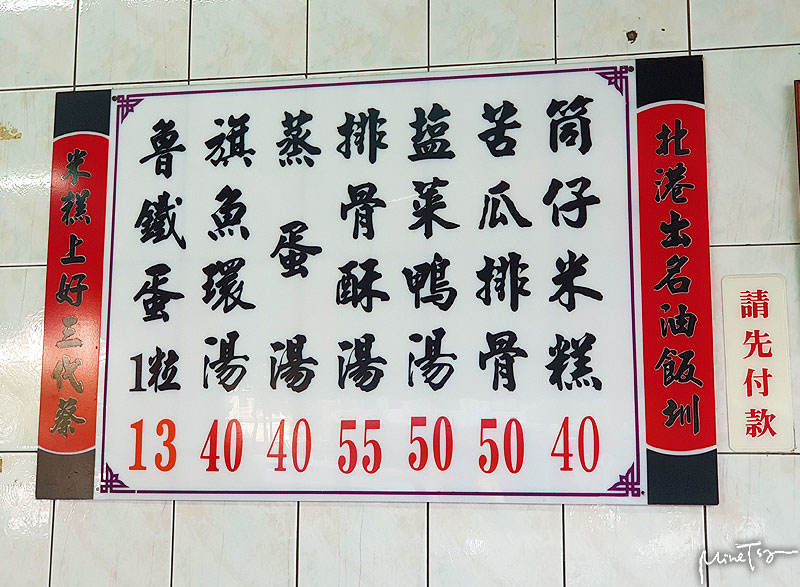 北港出名油飯圳
筒仔米糕 40
苦瓜排骨 50
塩菜鴨湯 50
排骨酥湯 55
蒸蛋湯 40
旗魚環湯 40
魯鐵蛋1粒 13
米糕上好三代祭
請先付款
MineTsy